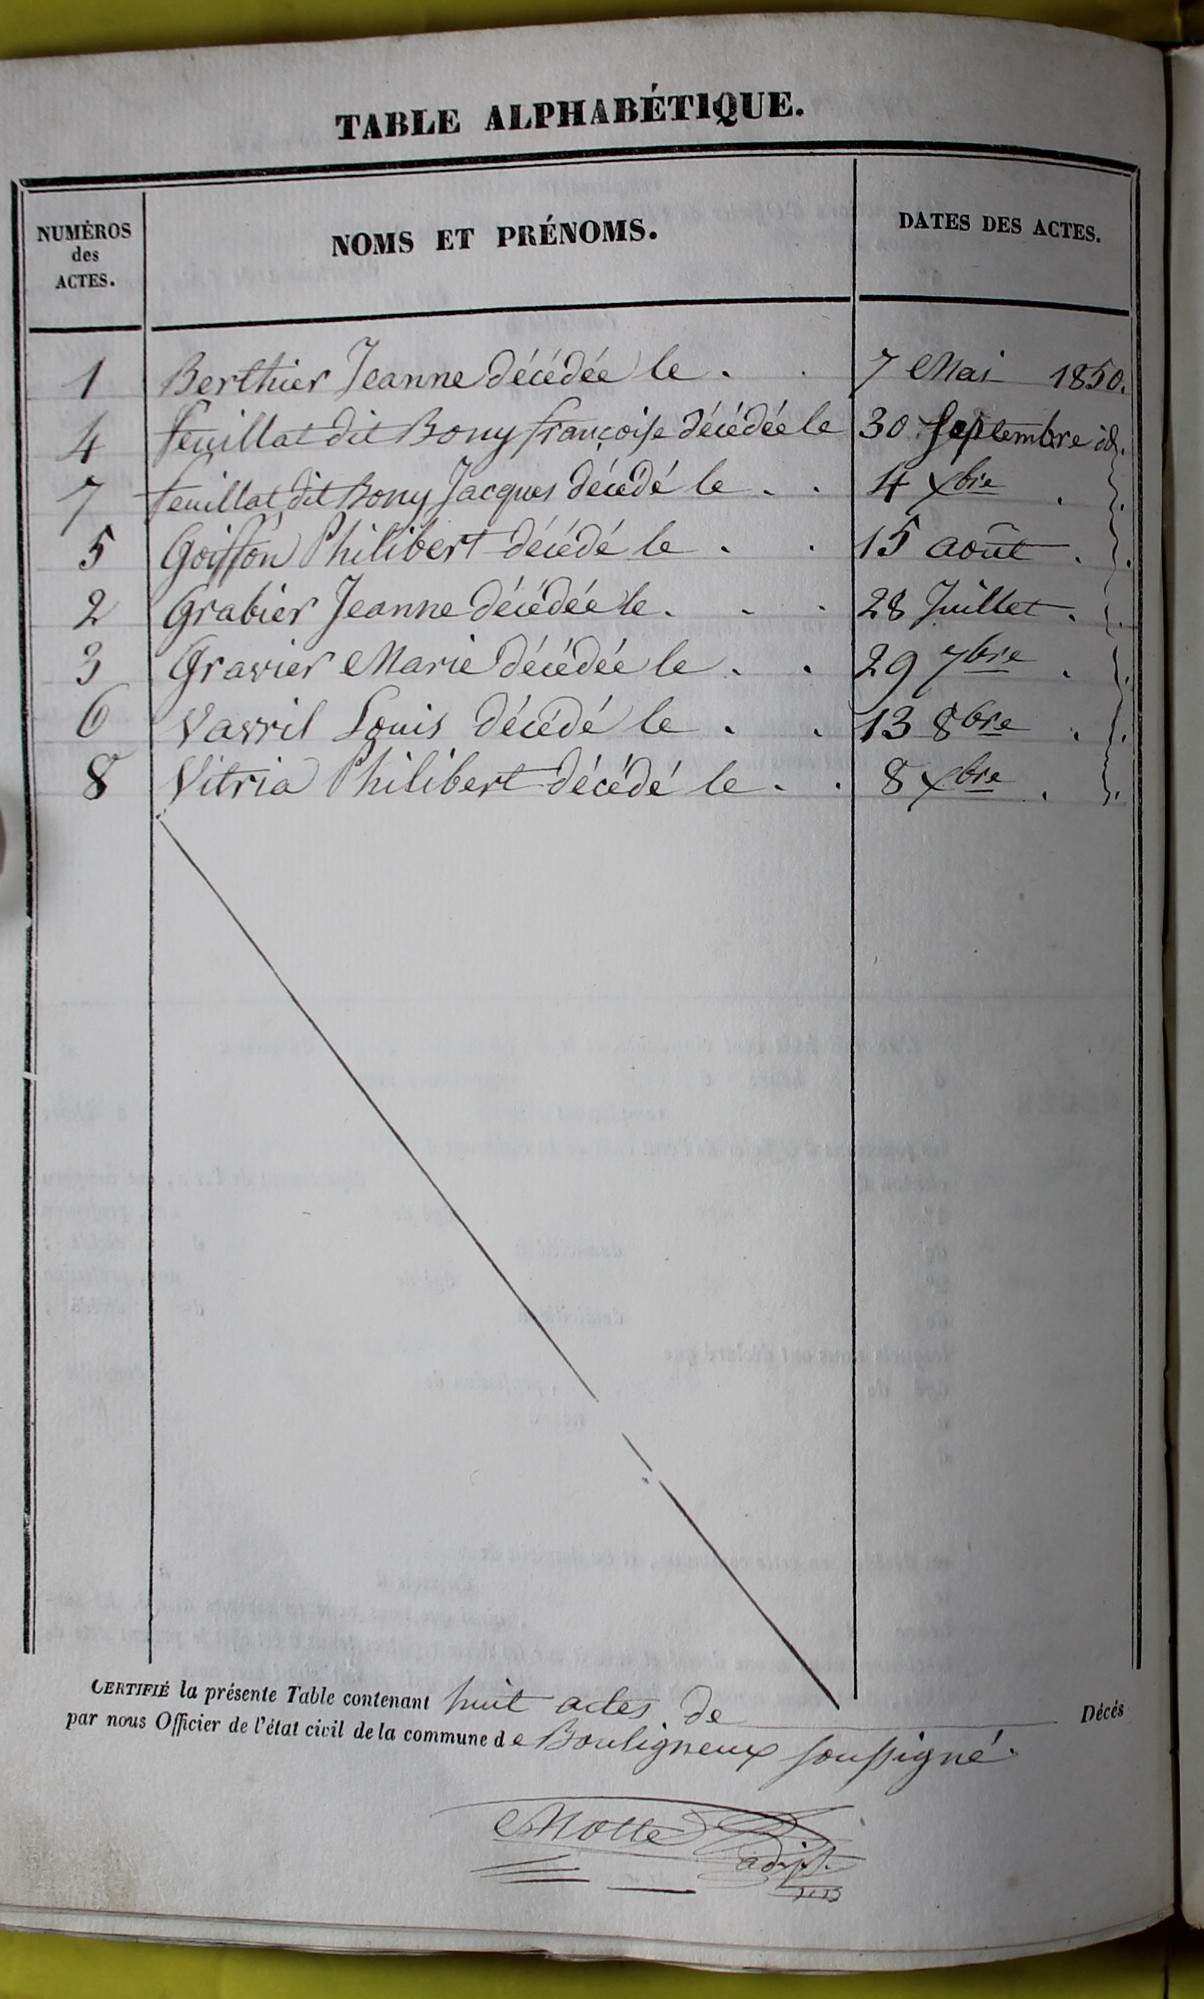 TABLE ALPHABÉTIQUE.
NUMÉROS des ACTES. NOMS ET PRÉNOMS. DATES DES ACTES.
1 Berthier Jeanne décédée le . . 7 Mai 1850.
4 feuillat dit Bony françoise décédée le 30 Septembre id.
7 feuillat dit Bony Jacques décédé le . . 4 Xbre .
5 Goiffon Philibert décédé le . . 15 août .
2 Grabier Jeanne décédée le . . . 28 Juillet .
3 Gravier Marie décédée le . . 29 7bre .
6 Vavril Louis décédé le . . 13 8bre .
8 Vitria Philibert décédé le . . 8 Xbre .
CERTIFIÉ la présente Table contenant huit actes de Décès
par nous Officier de l'état civil de la commune de Bouligneux soussigné.
Motte adjt.